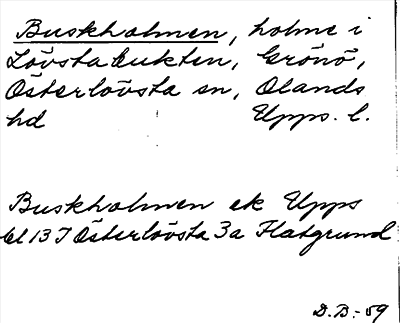 Buskholmen, holme i
Lövstabukten, Grönö,
Österlövsta sn, Olands
hd Upps. l.
Buskholmen ek Upps
bl 13 I Österlövsta 3a Flatgrund
D.B.-59